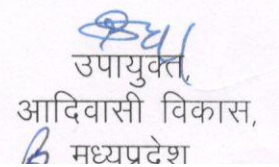 उपायुक्त,
आदिवासी विकास,
मध्यप्रदेश